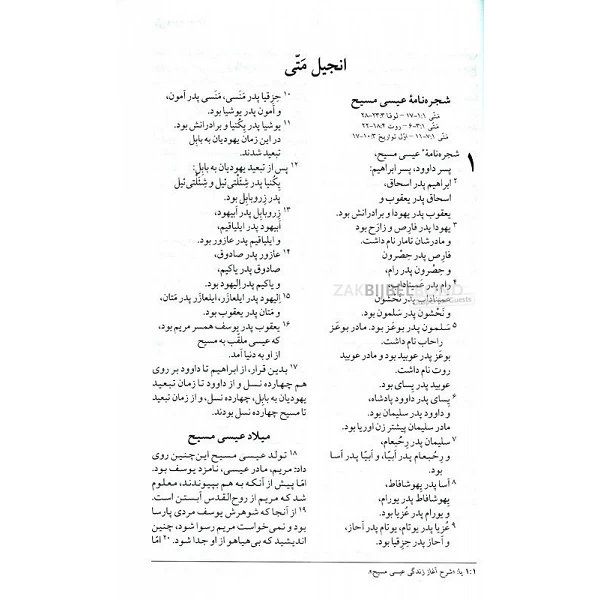 انجیل مَتّی
شجره‌نامهٔ عیسی مسیح
مَتّی ۱:۱-۱۷ - لوقا ۳:۲۳-۲۸
مَتّی ۳:۱-۶ - روت ۴:۱۸-۲۲
مَتّی ۷:۱-۱۱ - اوّل تواریخ ۳:۱۰-۱۷
۱ شجره‌نامهٔ* عیسی مسیح،
پسر داوود، پسر ابراهیم:
۲ ابراهیم پدر اسحاق،
اسحاق پدر یعقوب و
یعقوب پدر یهودا و برادرانش بود.
۳ یهودا پدر فارِص و زارَح بود
و مادرشان تامار نام داشت.
فارِص پدر حِصْرون
و حِصْرون پدر رام،
۴ رام پدر عَمیناداب،
عَمیناداب پدر نَحْشون
و نَحْشون پدر سَلمون بود.
۵ سَلمون پدر بوعَز بود. مادر بوعَز
راحاب نام داشت.
بوعَز پدر عوبید بود و مادر عوبید
روت نام داشت.
عوبید پدر یِسای بود.
۶ یِسای پدر داوود پادشاه،
و داوود پدر سلیمان بود.
مادر سلیمان پیشتر زن اوریا بود.
۷ سلیمان پدر رِحُبعام،
و رِحُبعام پدر اَبیّا، و اَبیّا پدر آسا
بود.
۸ آسا پدر یِهوشافاط،
یِهوشافاط پدر یورام،
و یورام پدر عُزیا بود.
۹ عُزیا پدر یوتام، یوتام پدر آحاز،
و آحاز پدر حِزِقیا بود.
۱۰ حِزِقیا پدر مَنَسی، مَنَسی پدر آمون،
و آمون پدر یوشیا بود.
۱۱ یوشیا پدر یِکُنیا و برادرانش بود.
در این زمان یهودیان به بابِل
تبعید شدند.
۱۲ پس از تبعید یهودیان به بابِل:
یِکُنیا پدر شِئَلتی‌ئیل و شِئَلتی‌ئیل
پدر زِروبابِل بود.
۱۳ زِروبابِل پدر اَبیهود،
اَبیهود پدر ایلیاقیم،
و ایلیاقیم پدر عازور بود.
۱۴ عازور پدر صادوق،
صادوق پدر یاکیم،
و یاکیم پدر اِلیهود بود.
۱۵ اِلیهود پدر ایلعازَر، ایلعازَر پدر مَتان،
و مَتان پدر یعقوب بود.
۱۶ یعقوب پدر یوسف همسر مریم بود،
که عیسی ملقّب به مسیح
از او به دنیا آمد.
۱۷ بدین قرار، از ابراهیم تا داوود بر روی
هم چهارده نسل و از داوود تا زمان تبعید
یهودیان به بابِل، چهارده نسل، و از زمان تبعید
تا مسیح چهارده نسل بودند.
میلاد عیسی مسیح
۱۸ تولد عیسی مسیح این‌چنین روی
داد: مریم، مادر عیسی، نامزد یوسف بود.
امّا پیش از آنکه به هم بپیوندند، معلوم
شد که مریم از روح‌القدس آبستن است.
۱۹ از آنجا که شوهرش یوسف مردی پارسا
بود و نمی‌خواست مریم رسوا شود، چنین
اندیشید که بی‌هیاهو از او جدا شود. ۲۰ امّا
۱:۱ یا: «شرح آغاز زندگی عیسی مسیح».